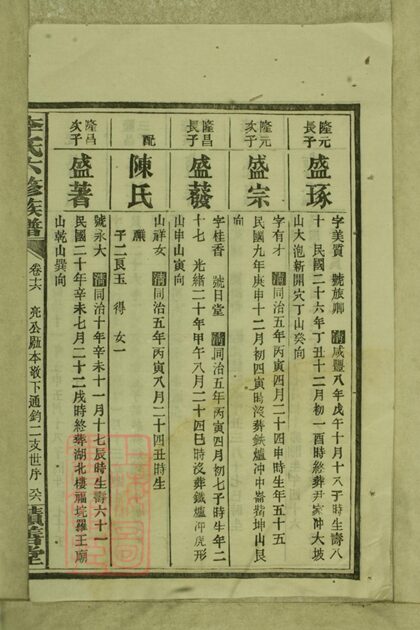 隆元長子
盛琢
字美質 號族卿 清咸豐八年戊午十月十八子時生壽八
十 民國二十六年丁丑十二月初一酉時終葬尹家沖大坡
山大泡新開穴丁山癸向
隆元次子
盛宗
字有才 清同治五年丙寅四月二十四申時生年五十五
民國九年庚申十二月初四寅時沒葬鉄爐冲中崙觜坤山艮
向
隆昌長子
盛發
字桂香 號日堂 清同治五年丙寅四月初七子時生年二
十七 光緒二十年甲午八月二十四巳時沒葬鐵爐冲虎形
山申山寅向
配
陳氏
山祥女 清同治五年丙寅八月二十四丑時生
子二艮玉 得 女一
隆昌次子
盛著
號永大 清同治十年辛未十一月十七辰時生壽六十一
民國二十年辛未七月二十二戌時終葬湖北棲福坑羅王廟
山乾山巽向
李氏六修族譜
卷十六 亮公
本
下通鈞二支世序